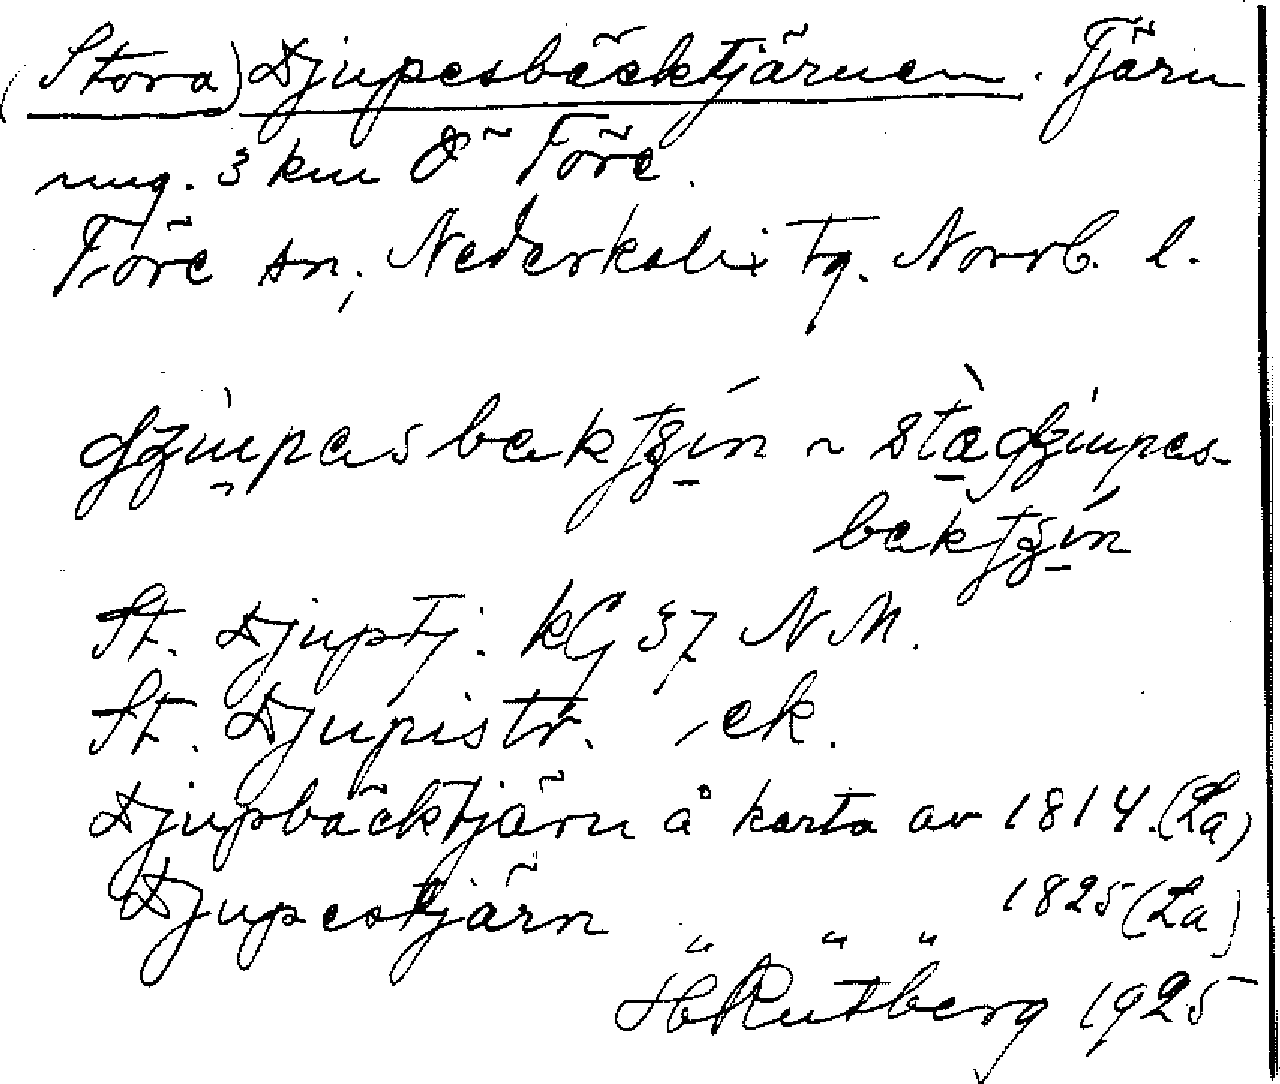 (Stora) Djupesbäcktjärnen. Tjärn
ung. 3 km Ö Töre.
Töre sn, Nederkalix tg. Norrb. l.
St. Djuptj. kG 37 NM.
St. Djupistr. ek.
Djupbäcktjärn å karta av 1814. (La)
Djupestjärn " " " 1825 (La)
H Rutberg 1925